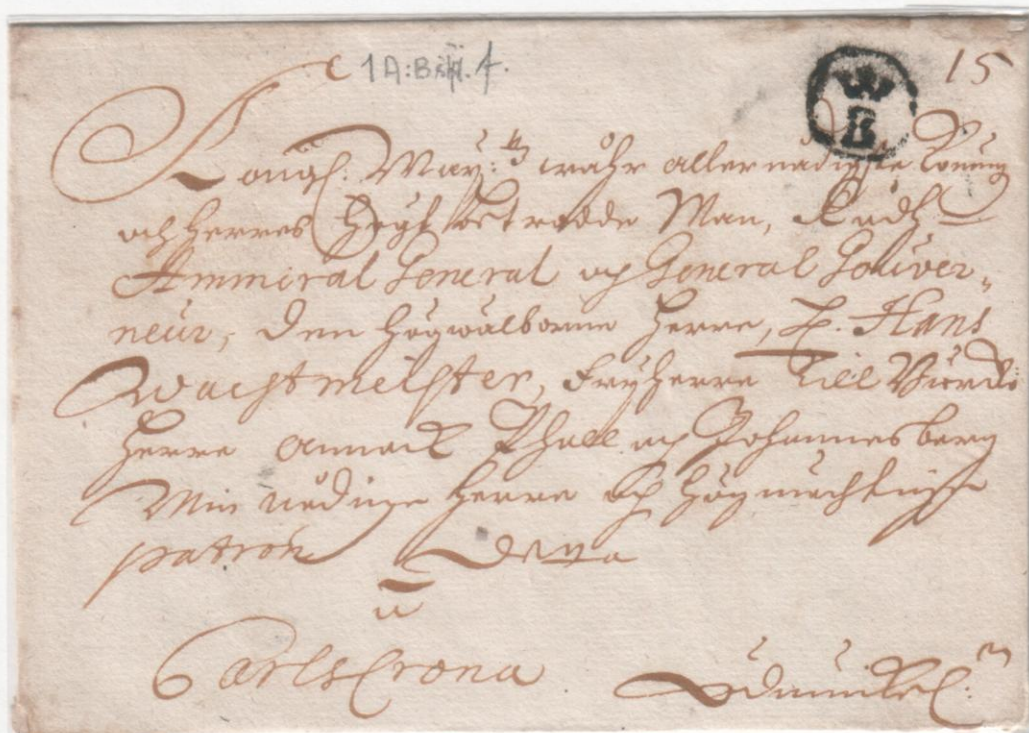 1A:B 4.
15
B
Kongl. May:tz wåhr allernådigste Konungz
och Herres Högt betrodde Man, Rådh
Ammiral General och General Gouver-
neur, den Högwälborne Herre, H. Hans
Wachtmeister, Fryherre till
Herre Annack och Johannesberg
Min nådige Herre och Högmechtige
patron Detta
a
CarlsCrona
Ödmiukel: